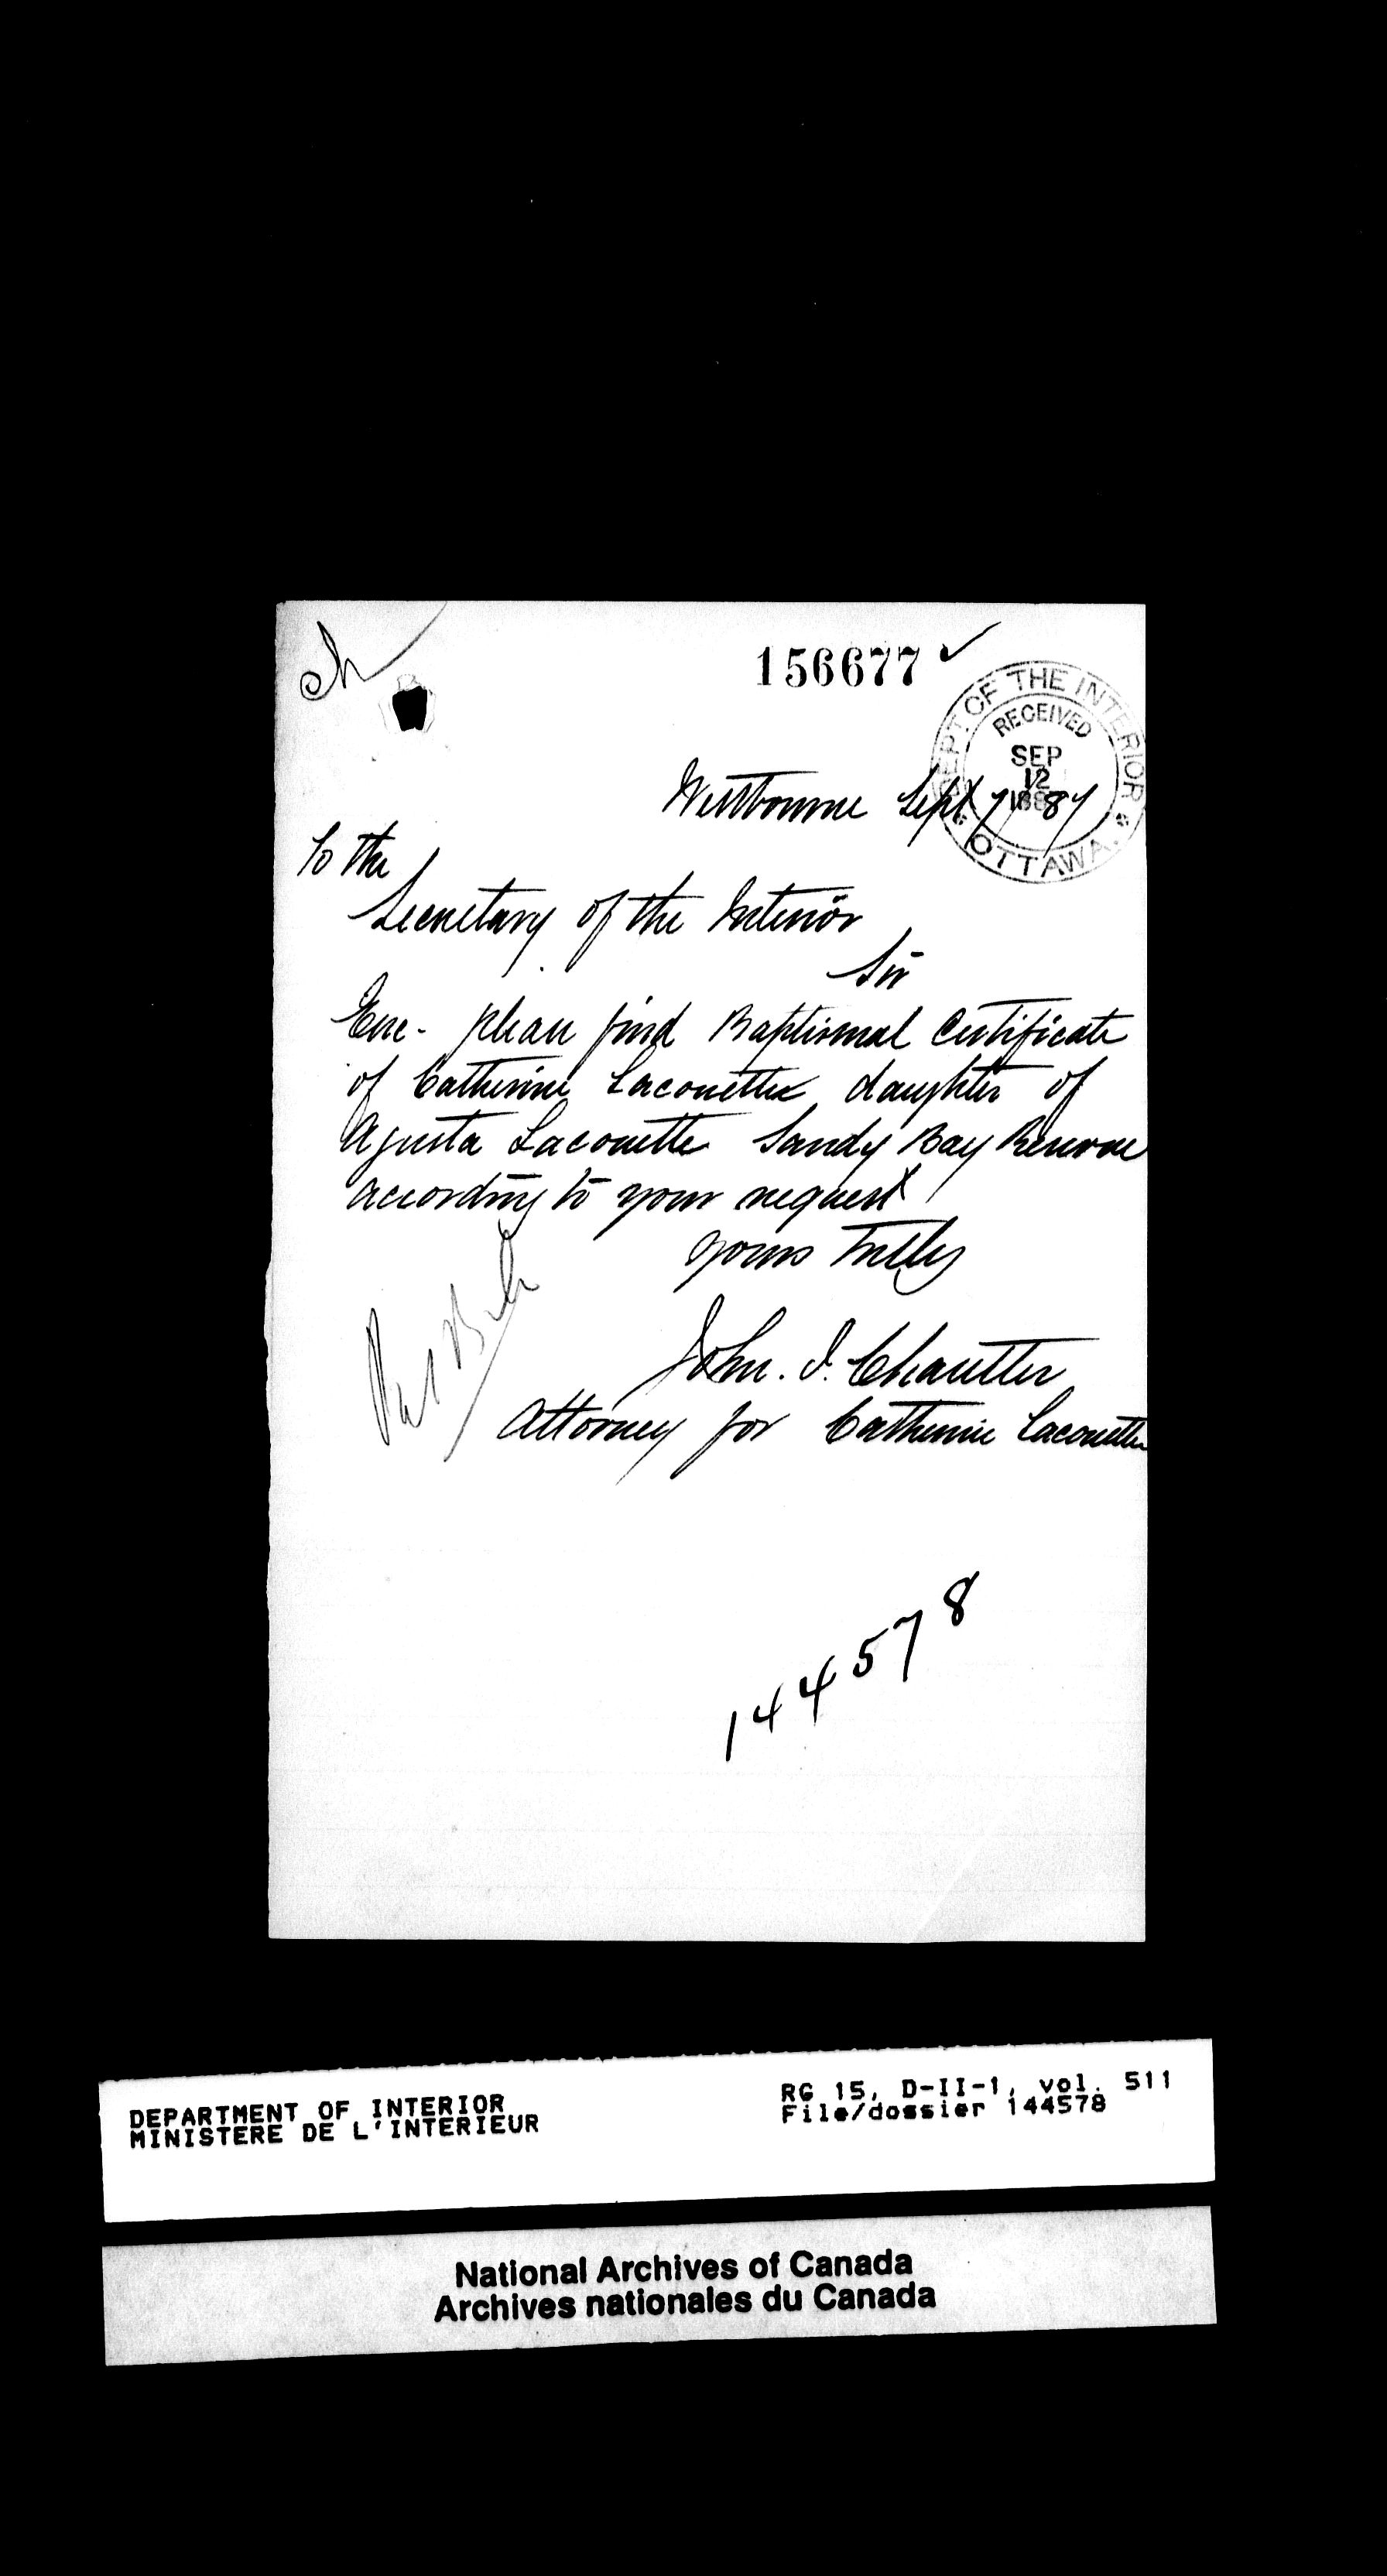 ch
156677
DEPT. OF THE INTERIOR
RECEIVED
SEP
12
188
OTTAWA.
Westbourne Sept 7/87
To the
Secretary of the Interior
Sir
Enc- please find Baptismal Certificate
of Catherine Lacouette daughter of
Agusta Lacouette Sandy Bay Reserve
according to your request
yours Truly
John. I. Chantler
Attorney for Catherine Lacouette
144578
DEPARTMENT OF INTERIOR
MINISTERE DE L'INTERIEUR
RG 15, D-II-1, vol. 511
File/dossier 144578
National Archives of Canada
Archives nationales du Canada